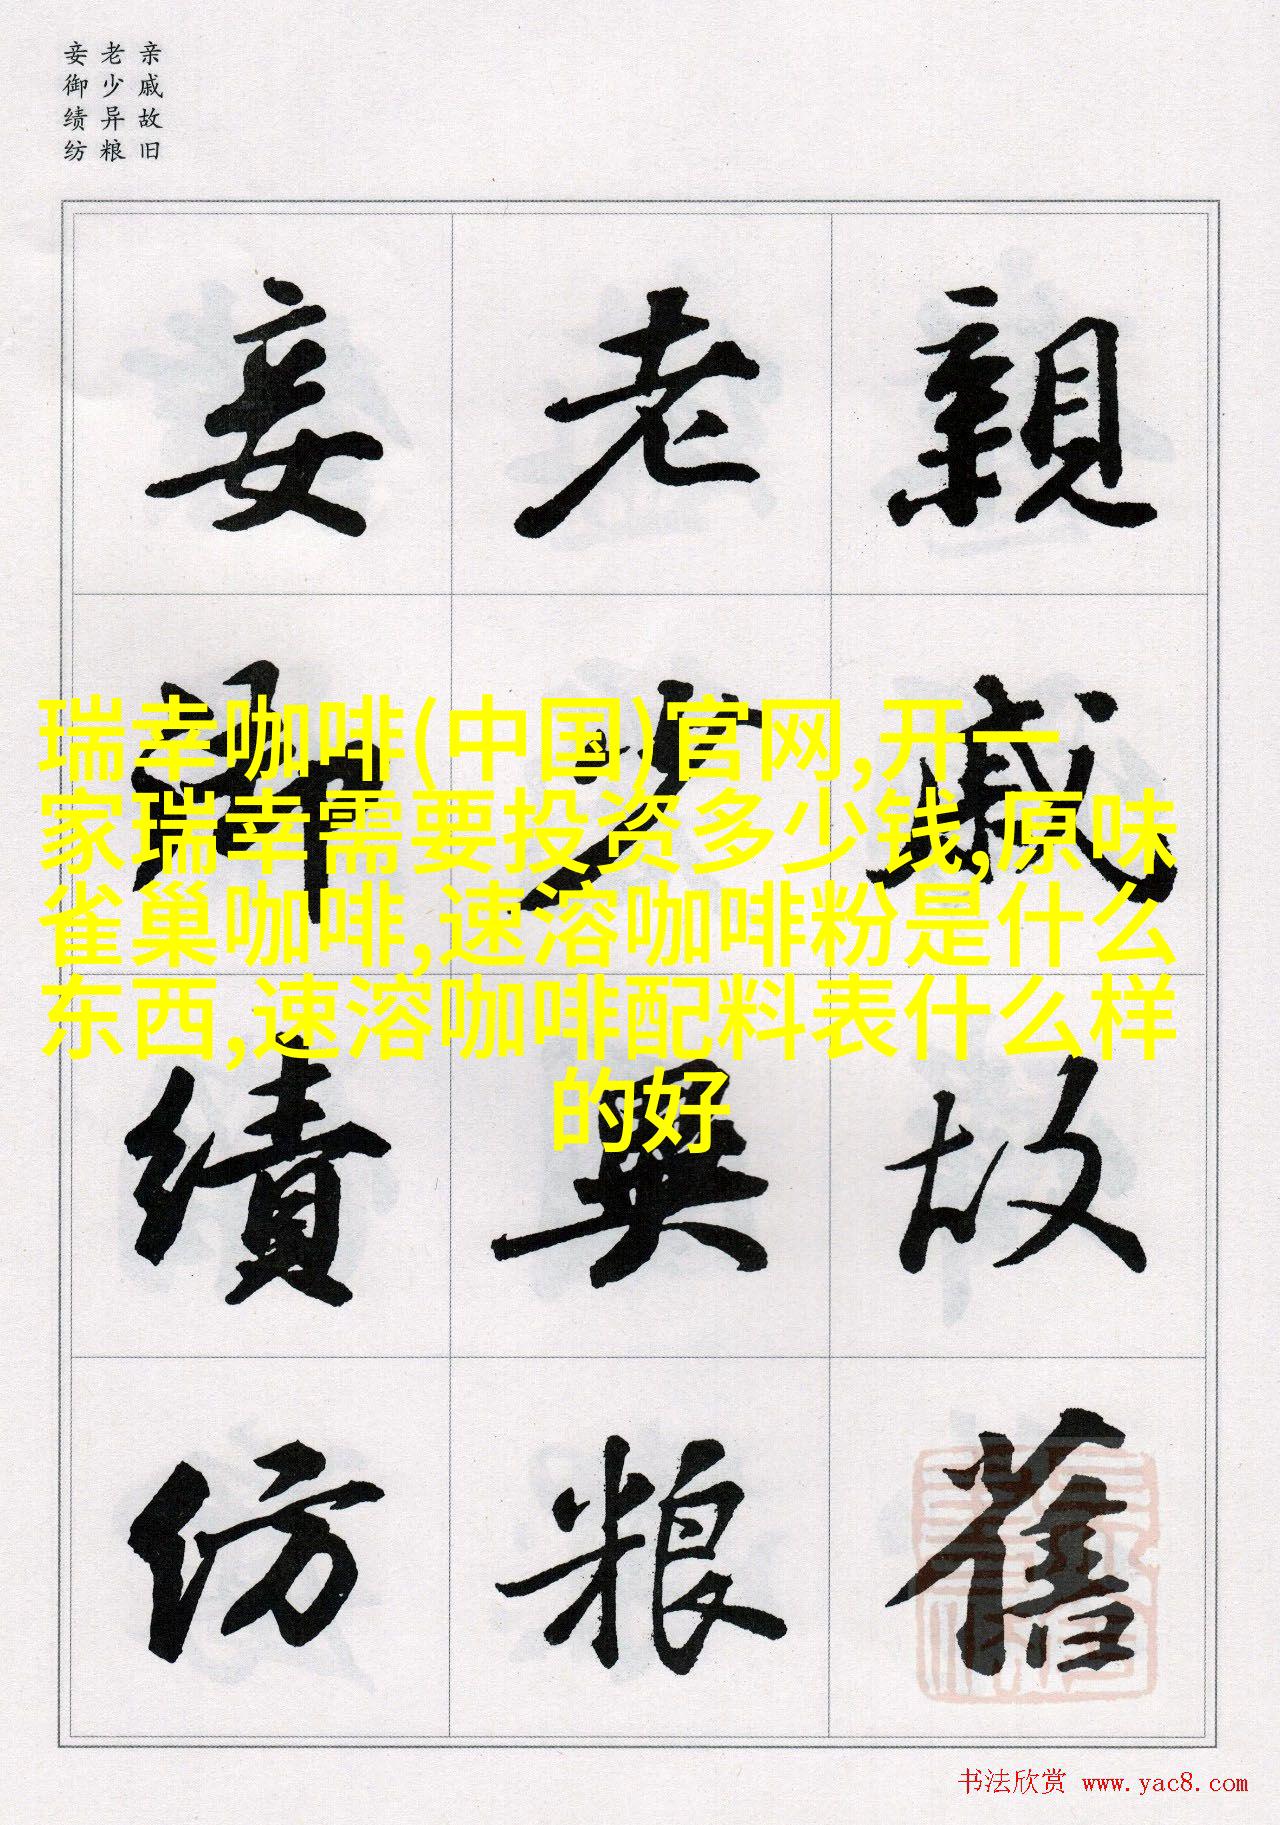 亲戚故旧
老少异粮
妾御绩纺
親戚故舊
老少異粮
妾御績紡
瑞幸咖啡(中国)官网,开一
家瑞幸需要投资多少钱,原味
雀巢咖啡,速溶咖啡粉是什么
东西,速溶咖啡配料表什么样
的好
书法欣赏 www.yac8.com